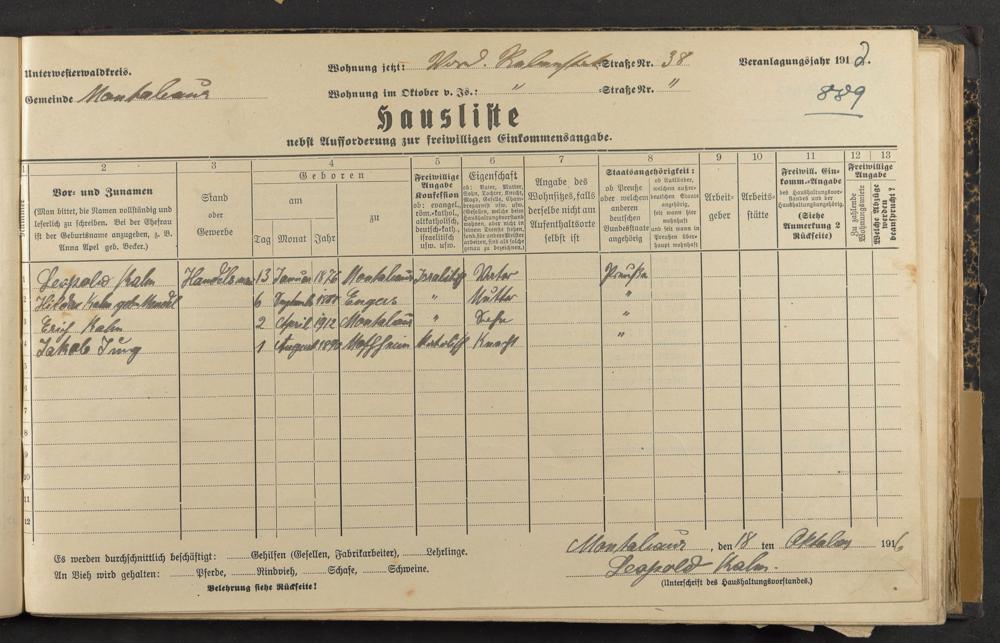 Unterwesterwaldkreis.
Gemeinde Montabaur
Wohnung jetzt: Vord. Straße Nr. 38
Wohnung im Oktober v. Js.: " Straße Nr. "
Veranlagungsjahr 191
889
Hausliste
nebst Aufforderung zur freiwilligen Einkommensangabe.
1 2 3 4 5 6 7 8 9 10 11 12 13
Vor- und Zunamen
(Man bittet, die Namen vollständig und
leserlich zu schreiben. Bei der Ehefrau
ist der Geburtsname anzugeben, z. B.
Anna Apel geb. Becker.)
Stand
oder
Gewerbe
Geboren
am
zu
Tag Monat Jahr
Freiwillige
Angabe
Konfession
ob: evangel.,
röm.-kathol.,
altkatholisch,
deutsch-kath.,
israelitisch
usw. usw.
Eigenschaft
ob: Vater, Mutter,
Sohn, Tochter, Knecht,
Magd, Geselle,
Angabe des
Wohnsitzes, falls
derselbe nicht am
Aufenthaltsorte
selbst ist
Staatsangehörigkeit:
ob Preuße
oder welchem
anderen
deutschen
Bundesstaate
angehörig
ob Ausländer,
welchem außer-
deutschen Staate
angehörig,
seit wann hier
wohnhaft
und seit wann in
Preußen über-
haupt wohnhaft
Arbeit-
geber
Arbeits-
stätte
Freiwill. Ein-
komm.-Angabe
des Haushaltungsvor-
standes und der
Haushaltungsangehörig.
(Siehe
Anmerkung 2
Rückseite)
Freiwillige
Angabe
Zu zahlende
Wohnungsmiete
Welche Abzüge
werden
beansprucht?
1 Leopold Kahn Handelsmann 13 Januar 1876 Montabaur Israelitisch Vater Preuße
2 Kahn geb. Mendel 6 Engers " Mutter "
3 Erich Kahn 2 April 1912 Montabaur " Sohn "
4 Jakob Jung 1 August Katholisch Knecht "
5
6
7
8
9
10
11
12
Es werden durchschnittlich beschäftigt: Gehilfen (Gesellen, Fabrikarbeiter), Lehrlinge.
An Vieh wird gehalten: Pferde, Rindvieh, Schafe, Schweine.
Belehrung siehe Rückseite!
Montabaur, den 18 ten Oktober 191
Leopold Kahn.
(Unterschrift des Haushaltungsvorstandes.)